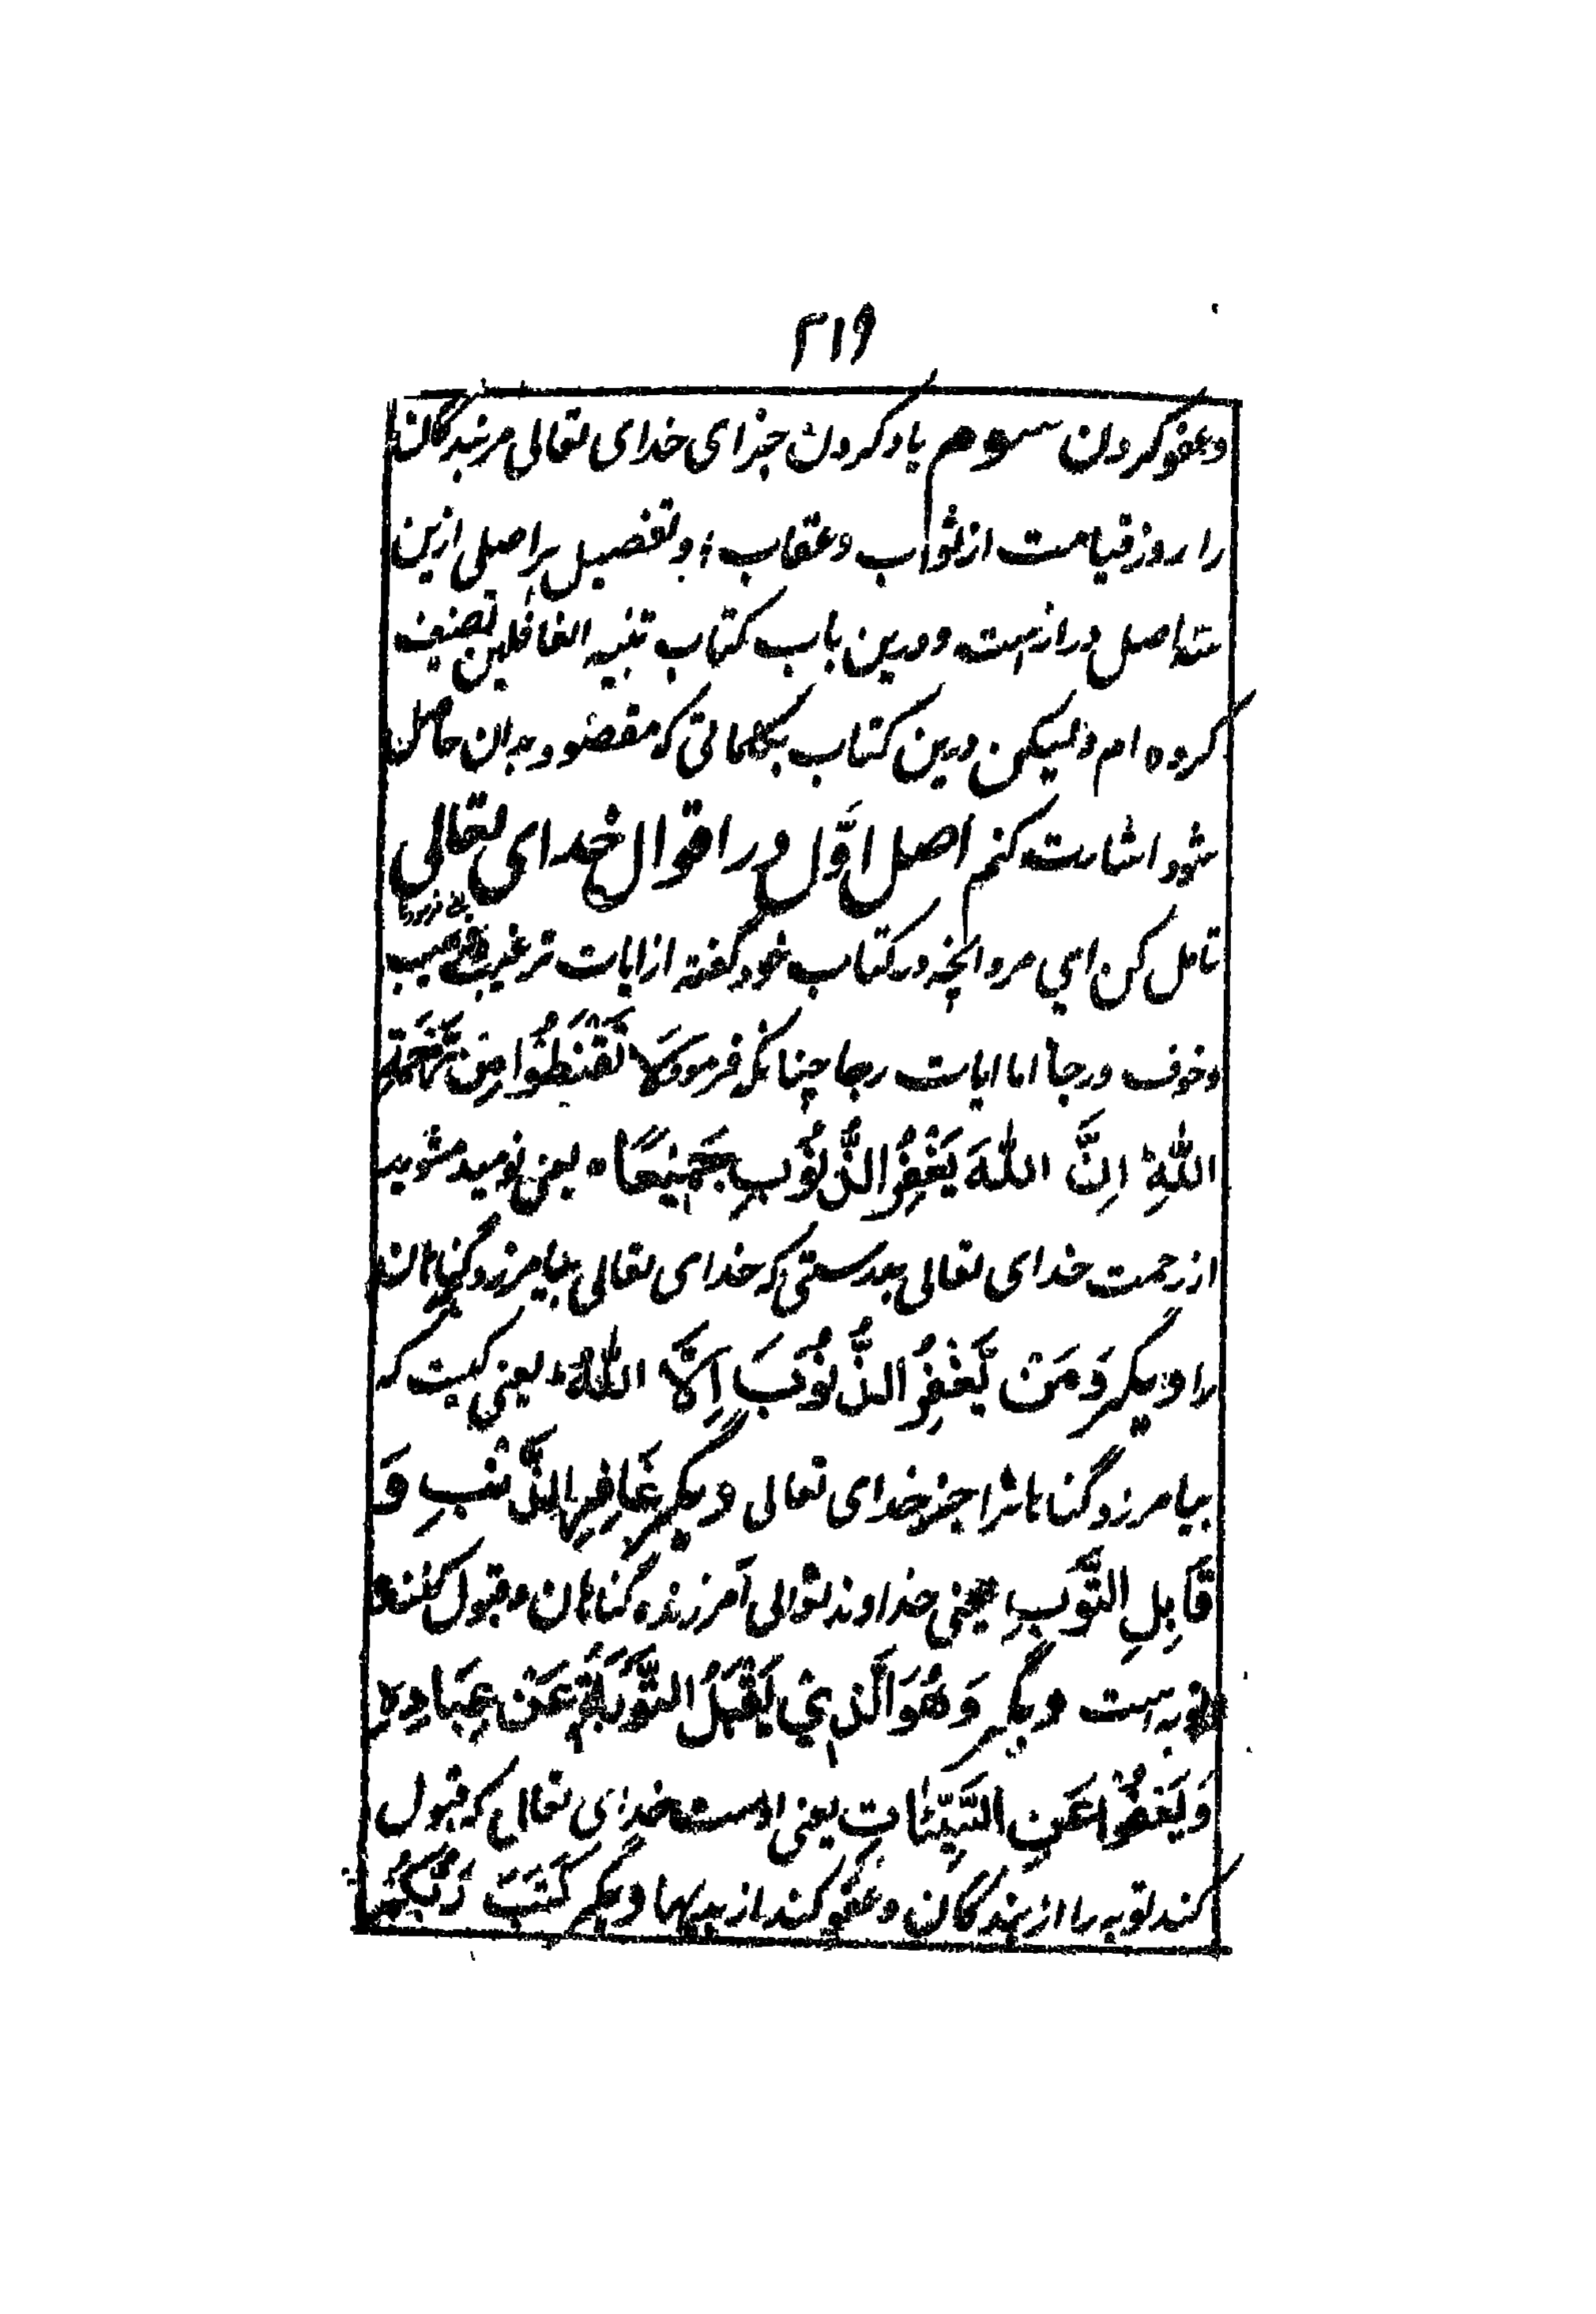 ۲۱۹
وعفو کردن سوم یاد کردن جزای خدای تعالی مر بندگان
را روز قیامت از ثواب وعقاب و تفصیل هر اصلی ازین
سه اصل دراز است و درین باب کتاب تنبیه الغافلین تصنیف
کرده ام ولیکن درین کتاب بکلماتی که مقصود بدان حاصل
شود اشارت کنم اصل اوّل در اقوال خدای تعالی
تامل کن ای مرد انچه در کتاب خود گفته از ایات ترغیب
وخوف ورجا اما ایات رجا چنانکه فرمود لَا تَقْنَطُوْا مِنْ رَّحْمَةِ
اللّٰهِ اِنَّ اللّٰهَ يَغْفِرُ الذُّنُوْبَ جَمِيْعًا یعنی نومید مشوید
از رحمت خدای تعالی بدرستی که خدای تعالی بیامرزد گناهان
را دیگر وَمَنْ يَّغْفِرُ الذُّنُوْبَ اِلَّا اللّٰهُ یعنی کیست که
بیامرزد گناهانرا جز خدای تعالی دیگر غَافِرِ الذَّنْبِ وَ
قَابِلِ التَّوْبِ یعنی خداوند تعالی آمرزنده گناهان و قبول کننده
توبه است دیگر وَهُوَ الَّذِيْ يَقْبَلُ التَّوْبَةَ عَنْ عِبَادِهٖ
وَيَعْفُوْا عَنِ السَّيِّئَاتِ یعنی اوست خدای تعالی که قبول
کند توبه را از بندگان و عفو کند از بدیها دیگر كَتَبَ رَبُّكُمْ